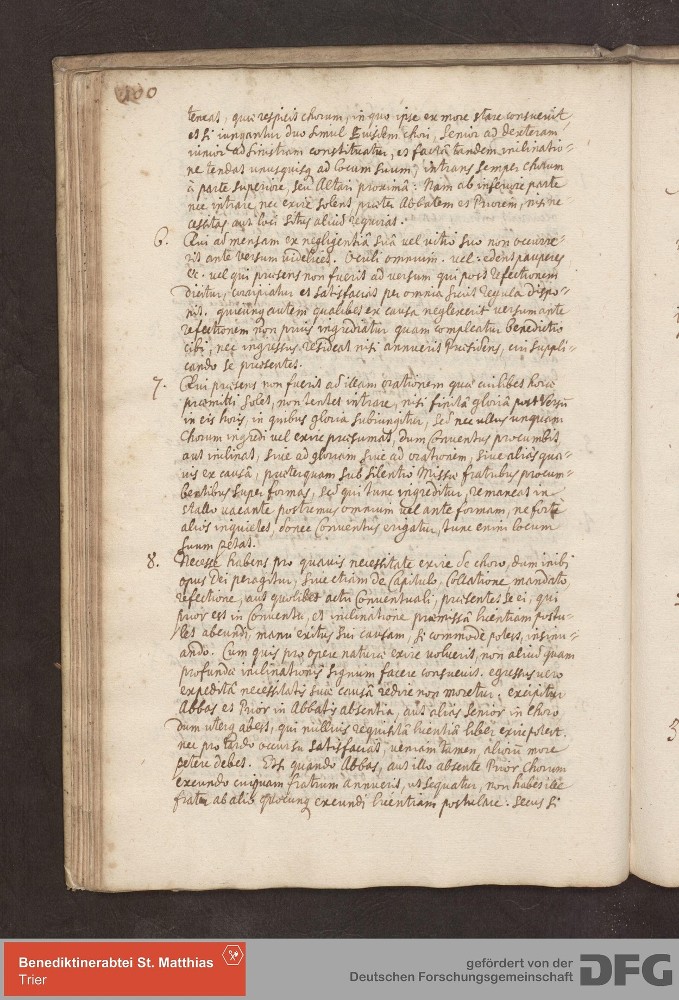 100
teneat, quae respicit chorum, in quo ipse ex more stare consuevit
et si iunguantur duo simul Eiusdem chori, senior ad dexteram,
iunior ad sinistram constituatur, et factâ tandem inclinatio=
ne tendat unusquisq ad locum suum, intrans semper chorum
à parte superiore, seu Altari proximâ: Nam ab inferiore parte
nec intrare nec exire solent praeter Abbatem et Priorem, nisi ne
cessitas aut loci situs aliud requirat.
6. Qui ad mensam ex negligentiâ suâ vel vitio suo non occurre=
rit ante versum videlicet. Oculi omnium. vel. edent pauperes
&c. vel qui praesens non fuerit ad versum qui post refectionem
dicitur, corripiatur et satisfaciat per omnia sicut regula dispo=
nit. quicunq autem qualibet ex causa neglexerit versum ante
refectionem non prius ingrediatur quam compleatur benedictio
cibi, nec ingressus resideat nisi annuerit Praesidens, cui suppli=
cando se praesentet.
7. Qui praesens non fuerit ad illam orationem quae cuilibet horae
praemitti solet, non tentet intrare, nisi finitâ gloriâ post Versu
in eis horis, in quibus gloria subiungitur, sed nec ullus unquam
Chorum ingredi vel exire praesumat, dum Conventus procumbit
aut inclinat, sive ad gloriam sive ad orationem, sive aliâs qua=
vis ex causâ, praeterquam sub silentio Missae fratribus procum=
bentibus super formas, sed qui tunc ingreditur, remaneat in
stallo vacante postremus omnium vel ante formam, ne forte
alios inquietet, donec Conventus erigatur, tunc enim locum
suum petat.
8. Necesse habens pro quavis necessitate exire de choro, dum inibi
opus Dei peragitur, sive etiam de Capitulo, Collatione mandato
refectione, aut quolibet actu Conventuali, praesentet se ei, qui
prior est in Conventu, et inclinatione praemissâ licentiam postu=
let abeundi, manu exitus sui causam, si commodè potest, insinu=
ando. Cum quis pro opere naturae exire voluerit, non aliud quam
profundae inclinationis signum facere consuevit. egressus vero
expeditâ necessitatis suae causâ redire non moretur. excipitur
Abbas et Prior in Abbatis absentia, aut aliâs senior in choro
dum uterq abest, qui nullius requisitâ licentiâ liberè exire potest.
nec pro tardo occursu satisfaciat, veniam tamen aliorum more
petere debet. Et quando Abbas, aut illo absente Prior chorum
exeundo cuiquam fratrum annuerit, ut sequatur, non habet ille
frater ab alio quocunq exeundi licentiam postulare. secus si
Benediktinerabtei St. Matthias
Trier
gefördert von der
Deutschen Forschungsgemeinschaft
DFG